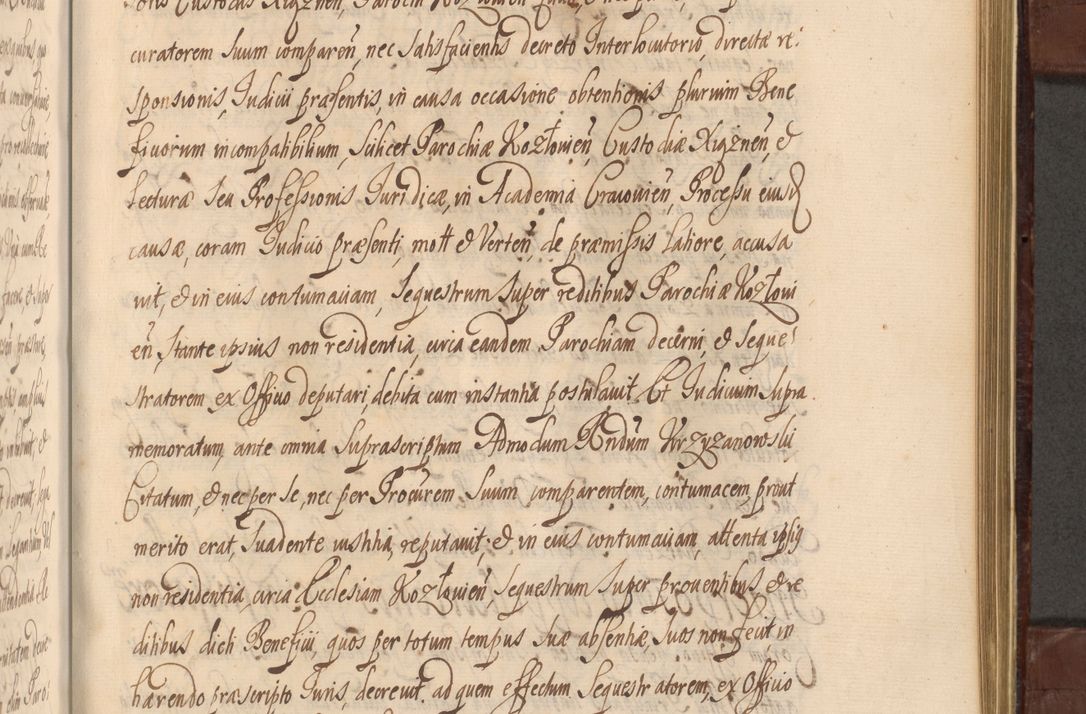 curatorem suum comparen, nec satisfacientis decreto Interlocutorio directæ re:
sponsionis, Iudicii præsentis, in causa occasione obtentionis plurium Bene
ficiorum incompatibilium, scilicet Parochiæ Kozłovien, Custodiæ Xiąznen, &
lecturæ seu Professionis Iuridicæ, in Academia Cracovien, Processu eiusd
causæ, coram Iudicio præsenti, mott & Verten, de præmissis latiore, accusa
vit, & in eius contumaciam, sequestrum super reditibus Parochiæ Kozłovi
en, stante ipsius non residentia, circa eandem Parochiam decerni, & seque:
stratorem ex Officio deputari, debita cum instantia postulavit Et Iudicium supra
memoratum, ante omnia suprascriptum Admodum Rndum Krzyzanowski
Citatum, & nec per se, nec per Procurem suum comparentem, contumacem, prout
merito erat, suadente iustitia, reputavit; & in eius contumaciam, attenta ipsius
non residentia, circa Ecclesiam Kozłovien sequestrum super proventibus, & re
ditibus dicti Beneficii, quos per totum tempus suæ absentiæ, suos non fecit in
hærendo præscripto Iuris, decrevit, ad quem effectum sequestratorem, ex Officio